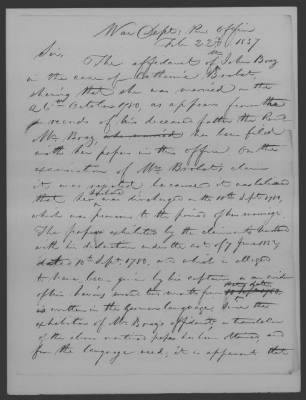 War Dept: Pen Office
Feb 22d 1837
Sir,
The affidavit of John Boaz
in the case of Catharine
shewing that she was married on the
26th October 1780, as appears from the
records of his deceased father the Rev
Mr Boaz, has been filed
with her papers in this office. On the
examination of Mrs claim
it was rejected because it was believed
that her husband was discharged on the 10th Sept. 1780,
which was previous to the period of her marriage.
The paper exhibited by the claimant
with his declaration under the act of 7 June 1832,
dated 10th Sept. 1780, and which is alleged
to have been given by his captain, as an evidence
of his having served two months from
is written in the German language. Since the
exhibition of Mr Boaz's affidavit, a translation
of the above mentioned paper has been obtained, and
from the language used, it is apparent that